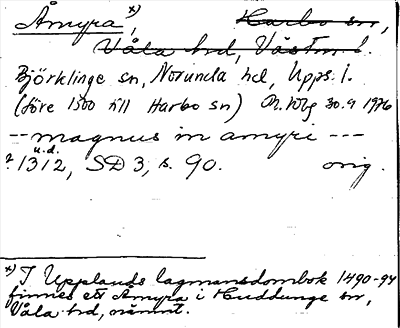 Åmyra x), Harbo sn,
Våla hd, Västm. l.
Björklinge sn, Norunda hd, Upps. l.
(före 1500 till Harbo sn) 30.9 1976
-- magnus in amyri ---
u.d.
? 1312, SD 3, s. 90. orig.
x) I Upplands lagmansdombok 1490-94
finnes ett Åmyra i Huddunge sn,
Våla hd, nämnt.